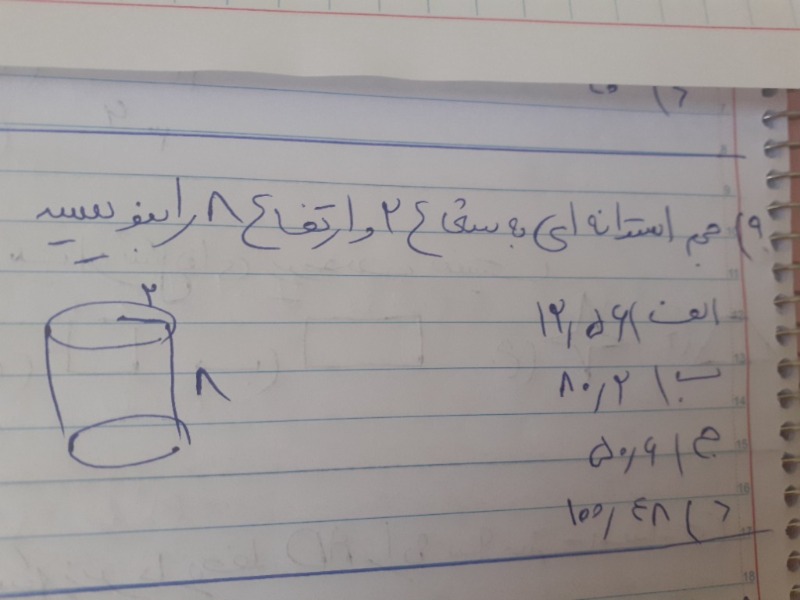 ۹) حجم استوانه ای به شعاع ۲ و ارتفاع ۸ را بنویسید
الف) ۱۲٫۵۶
ب) ۸۰٫۲
ج) ۵۰٫۶
د) ۱۰۰٫۴۸
۲
۸